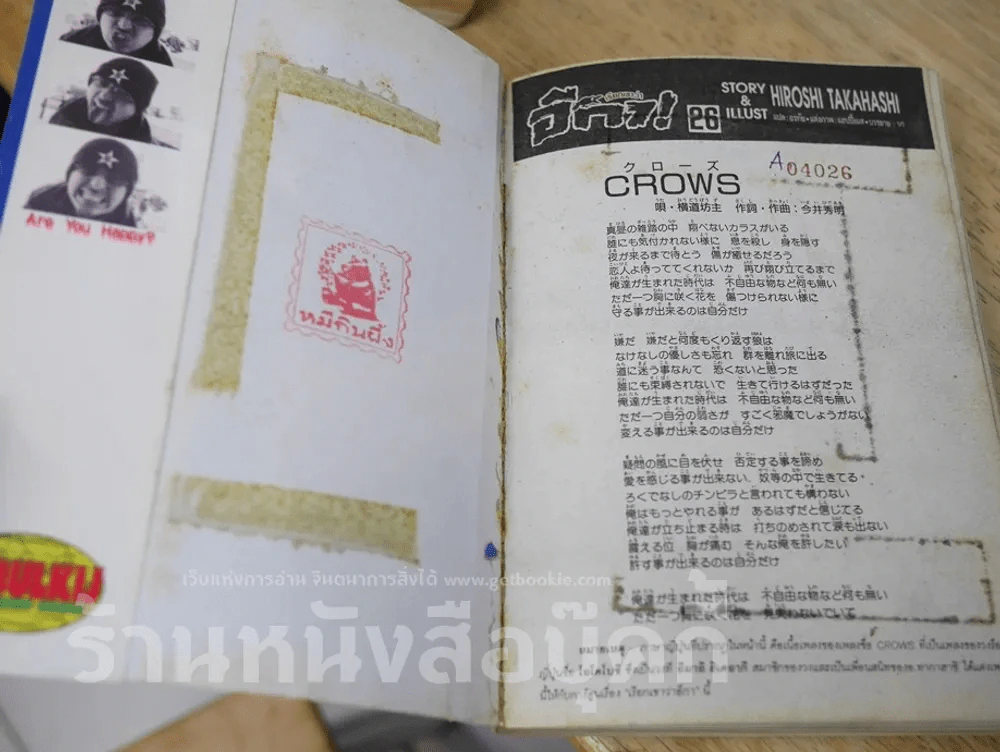 Are You Happy?
หมีกินผึ้ง
เรียกเขาว่า
อีกา!
26
STORY
&
ILLUST
HIROSHI TAKAHASHI
A 04026
クローズ
CROWS
唄・横道坊主 作詞・作曲:今井秀明
真昼の雑踏の中 翔べないカラスがいる
誰にも気付かれない様に 息を殺し 身を隠す
夜が来るまで待とう 傷が癒せるだろう
恋人よ待っててくれないか 再び翔び立てるまで
俺達が生まれた時代は 不自由な物など何も無い
ただ一つ胸に咲く花を 傷つけられない様に
守る事が出来るのは自分だけ
嫌だ 嫌だと何度もくり返す狼は
なけなしの優しさも忘れ 群を離れ旅に出る
道に迷う事なんて 恐くないと思った
誰にも束縛されないで 生きて行けるはずだった
俺達が生まれた時代は 不自由な物など何も無い
ただ一つ自分の弱さが すごく邪魔でしょうがない
変える事が出来るのは自分だけ
疑問の風に目を伏せ 否定する事を諦め
愛を感じる事が出来ない、奴等の中で生きてる
ろくでなしのチンピラと言われても構わない
俺はもっとやれる事が あるはずだと信じてる
俺達が立ち止まる時は 打ちのめされて涙も出ない
震える位 胸が痛む そんな俺を許したい
許す事が出来るのは自分だけ
俺達が生まれた時代は 不自由な物など何も無い
ただ一つ胸に咲く花を 見失わないでいて
หมายเหตุ ภาษาญี่ปุ่นที่ปรากฏในหน้านี้ คือเนื้อเพลงของเพลงชื่อ CROWS ที่เป็นเพลงของวง
นี้ให้กับการ์ตูนเรื่อง "เรียกเขาว่าอีกา" นี้
เว็บแห่งการอ่าน จินตนาการสิ่งได้ www.getbookie.com
ร้านหนังสือบุ๊คกี้